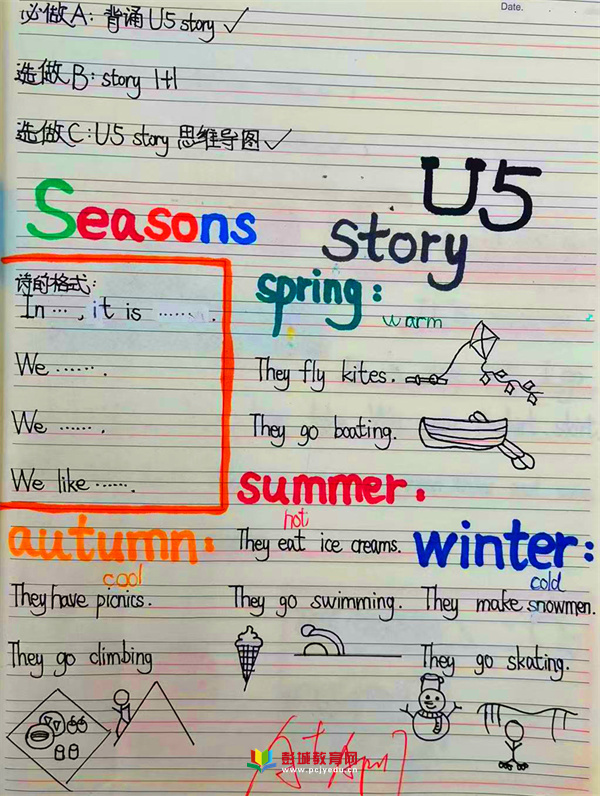 Date.
必做A: 背诵U5 story ✓
选做B: story 1+1
选做C: U5 story 思维导图✓
U5
Seasons
story
诗的格式:
In ···, it is ······.
We ······.
We ······.
We like ······.
spring:
warm
They fly kites.
They go boating.
summer:
hot
They eat ice creams.
They go swimming.
autumn:
cool
They have picnics.
They go climbing
winter:
cold
They make snowmen.
They go skating.
彭城教育网
www.pcjyedu.cn